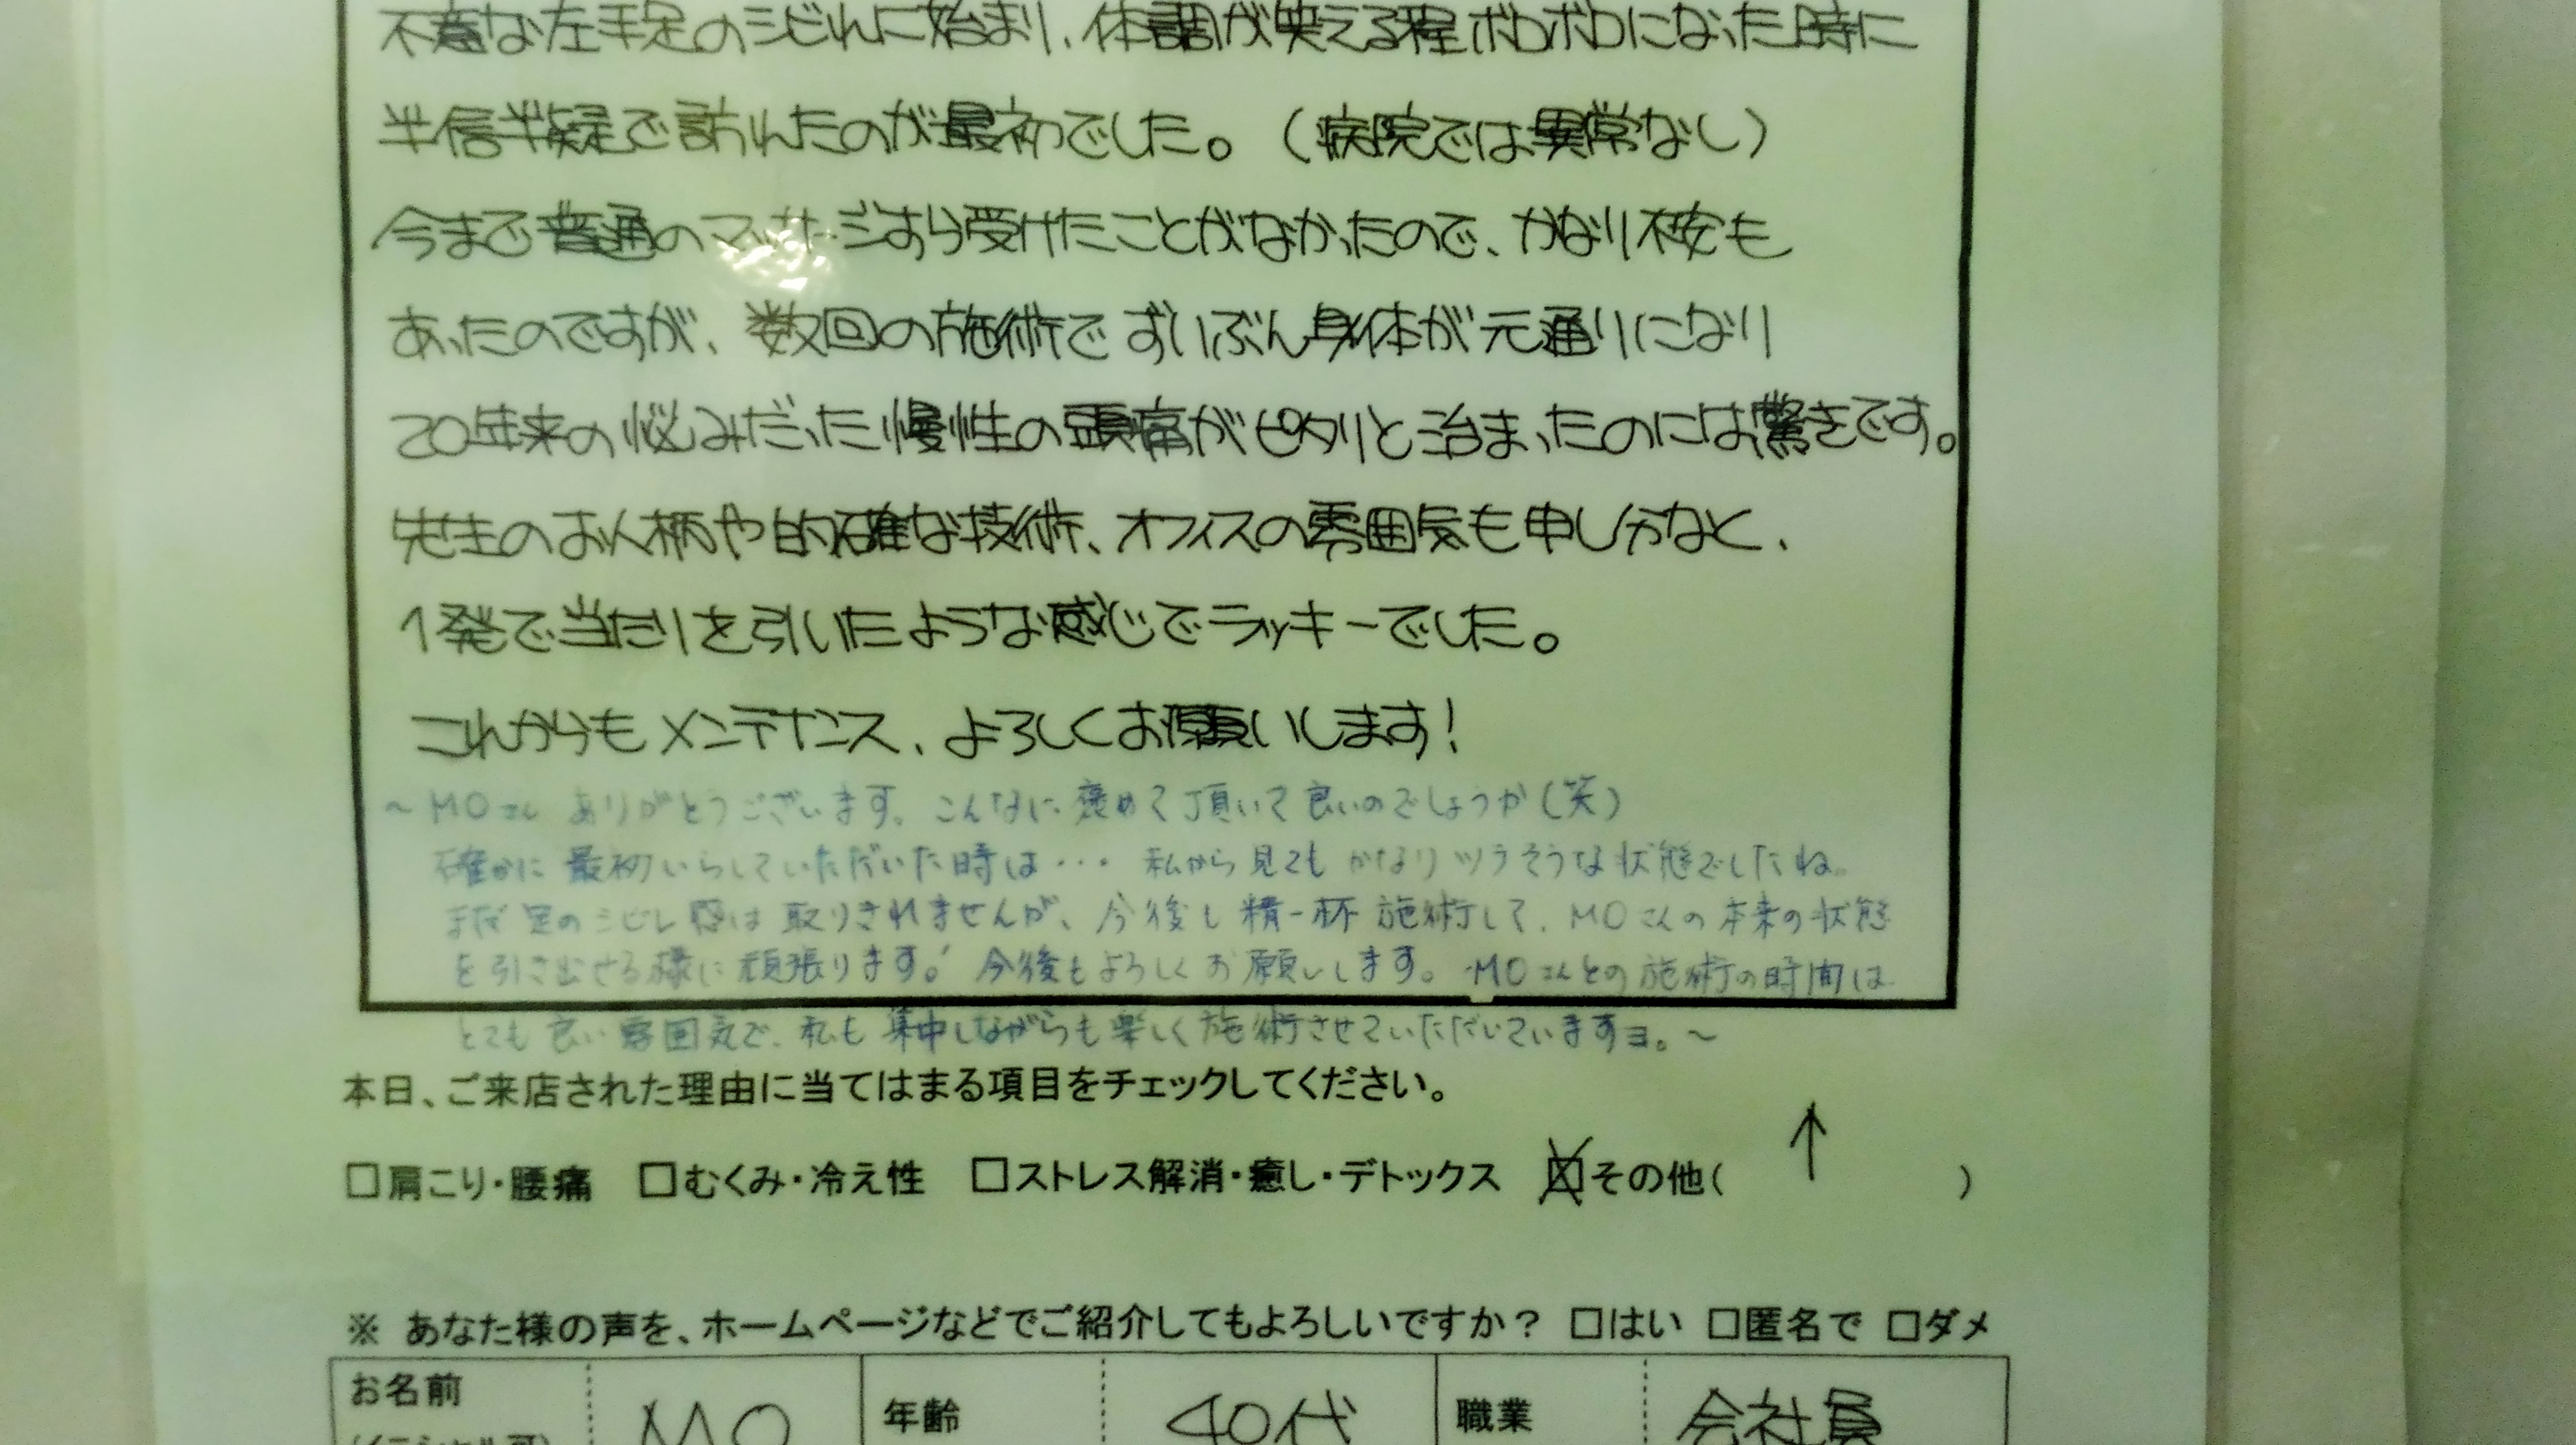 不意な左手足のシビれに始まり、体調が笑える程ボロボロになった時に
半信半疑で訪れたのが最初でした。(病院では異常なし)
今まで普通のマッサージすら受けたことがなかったので、かなり不安も
あったのですが、数回の施術でずいぶん身体が元通りになり
20年来の悩みだった慢性の頭痛がピタリと治まったのには驚きです。
先生のお人柄や的確な技術、オフィスの雰囲気も申し分なく、
1発で当たりを引いたような感じでラッキーでした。
これからもメンテナンス、よろしくお願いします!
~MOさん ありがとうございます。こんなに褒めて頂いて良いのでしょうか(笑)
確かに最初いらしていただいた時は・・・私から見てもかなりツラそうな状態でしたね。
まだ足のシビレ感は取りきれませんが、今後も精一杯施術して、MOさんの本来の状態
を引き出せる様に頑張ります!今後もよろしくお願いします。MOさんとの施術の時間は
とても良い雰囲気で、私も集中しながらも楽しく施術させていただいていますヨ。~
本日、ご来店された理由に当てはまる項目をチェックしてください。
□肩こり・腰痛 □むくみ・冷え性 □ストレス解消・癒し・デトックス ☒その他( ↑ )
※ あなた様の声を、ホームページなどでご紹介してもよろしいですか? □はい □匿名で □ダメ
お名前 MO 年齢 40代 職業 会社員